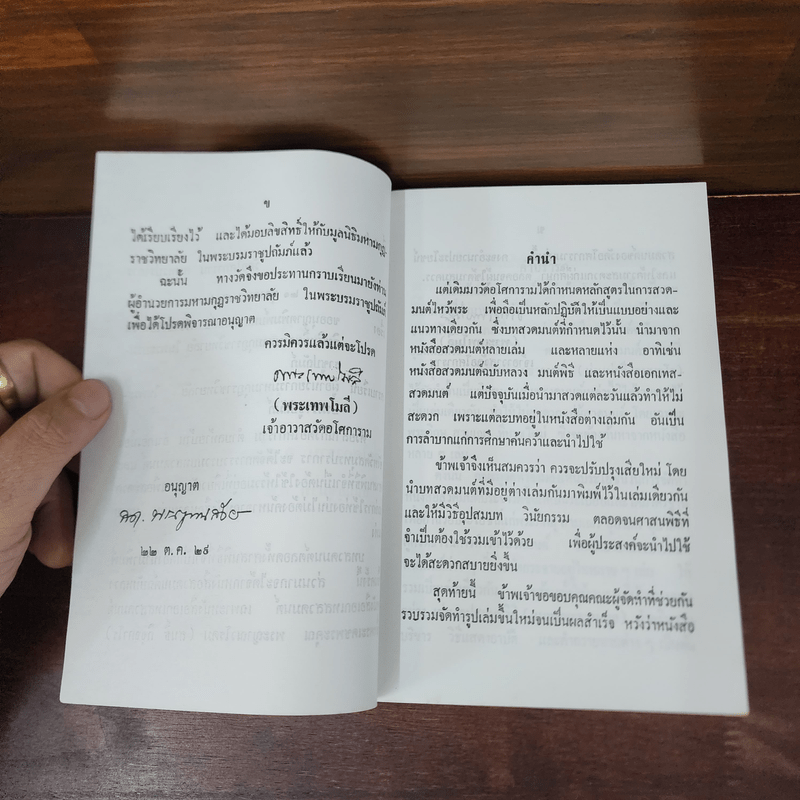 ข
ได้เรียบเรียงไว้ และได้มอบลิขสิทธิ์ให้กับมูลนิธิมหามกุฏ
ราชวิทยาลัย ในพระบรมราชูปถัมภ์แล้ว
ฉะนั้น ทางวัดจึงขอประทานกราบเรียนมายังท่าน
ผู้อำนวยการมหามกุฏราชวิทยาลัย ในพระบรมราชูปถัมภ์
เพื่อได้โปรดพิจารณาอนุญาต
ควรมิควรแล้วแต่จะโปรด
พระเทพโมลี
(พระเทพโมลี)
เจ้าอาวาสวัดอโศการาม
อนุญาต
๒๒ ต.ค. ๒๙
คำนำ
แต่เดิมมาวัดอโศการามได้กำหนดหลักสูตรในการสวด-
มนต์ไหว้พระ เพื่อถือเป็นหลักปฏิบัติให้เป็นแบบอย่างและ
แนวทางเดียวกัน ซึ่งบทสวดมนต์ที่กำหนดไว้นั้น นำมาจาก
หนังสือสวดมนต์หลายเล่ม และหลายแห่ง อาทิเช่น
หนังสือสวดมนต์ฉบับหลวง มนต์พิธี และหนังสือเอกเทส-
สวดมนต์ แต่ปัจจุบันเมื่อนำมาสวดแต่ละวันแล้วทำให้ไม่
สะดวก เพราะแต่ละบทอยู่ในหนังสือต่างเล่มกัน อันเป็น
การลำบากแก่การศึกษาค้นคว้าและนำไปใช้
ข้าพเจ้าจึงเห็นสมควรว่า ควรจะปรับปรุงเสียใหม่ โดย
นำบทสวดมนต์ที่มีอยู่ต่างเล่มกันมาพิมพ์ไว้ในเล่มเดียวกัน
และให้มีวิธีอุปสมบท วินัยกรรม ตลอดจนศาสนพิธีที่
จำเป็นต้องใช้รวมเข้าไว้ด้วย เพื่อผู้ประสงค์จะนำไปใช้
จะได้สะดวกสบายยิ่งขึ้น
สุดท้ายนี้ ข้าพเจ้าขอขอบคุณคณะผู้จัดทำที่ช่วยกัน
รวบรวมจัดทำรูปเล่มขึ้นใหม่จนเป็นผลสำเร็จ หวังว่าหนังสือ